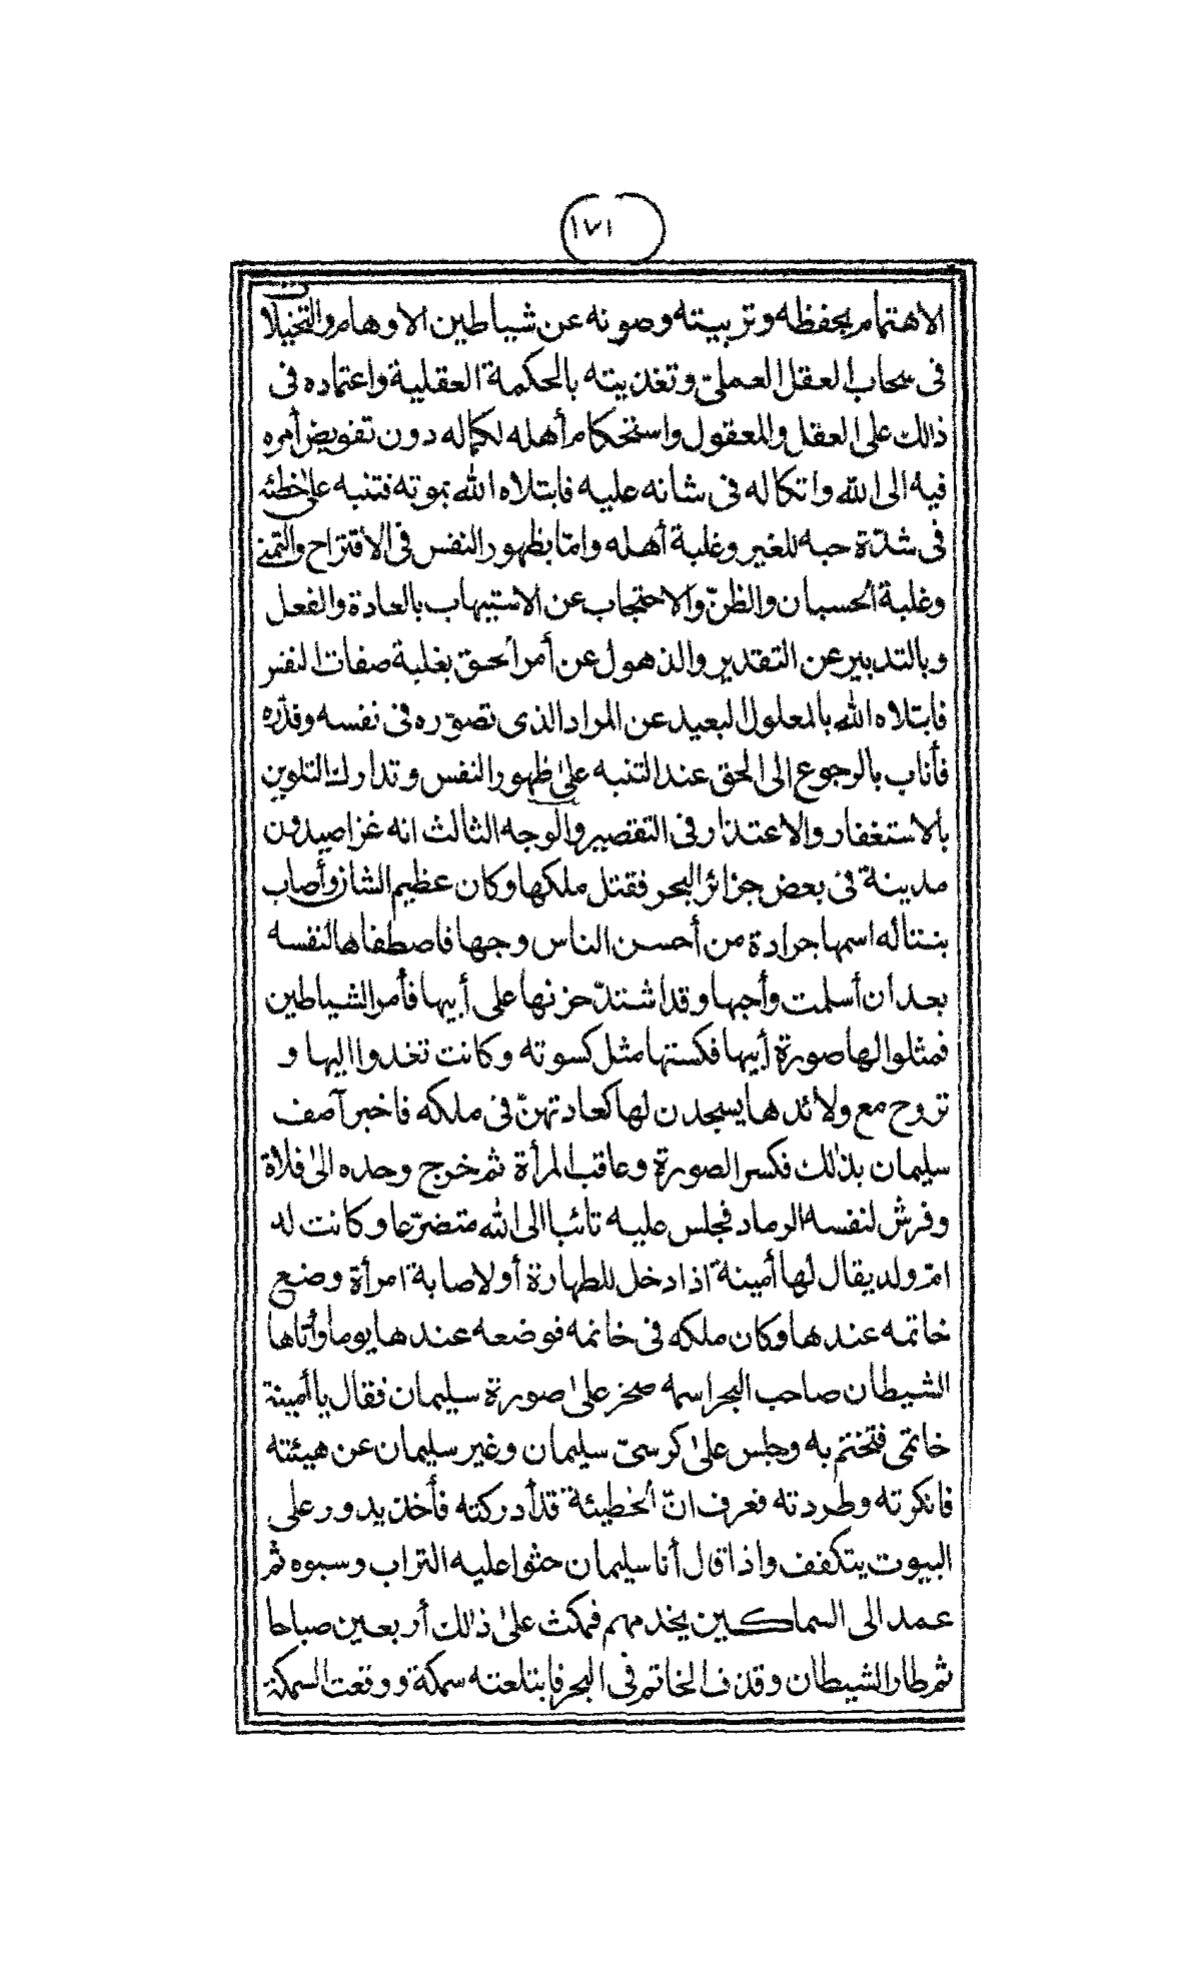 ١٧١
الاهتمام بحفظه وتربيته وصونه عن شياطين الاوهام والتخيلات
فى سحاب العقل العملىّ وتغذيته بالحكمة العقلية واعتماده فى
ذالك على العقل والمعقول واستحكام أهله لكماله دون تفويض أمره
فيه الى الله واتكاله فى شانه عليه فابتلاه الله بموته فتنبه على خطئه
فى شدّة حبه للغير وغلبة أهله وامّا بظهور النفس فى الاقتراح والتمنى
وغلبة الحسبان والظنّ والاحتجاب عن الاستيهاب بالعادة والفعل
وبالتدبير عن التقدير والذهول عن أمر الحق بغلبة صفات النفس
فابتلاه الله بالمعلول البعيد عن المراد الذى تصوّره فى نفسه وقدّره
فأناب بالرجوع الى الحق عند التنبه على ظهور النفس وتدارك التلوين
بالاستغفار والاعتذار فى التقصير والوجه الثالث انه غزا صيدون
مدينة فى بعض جزائر البحر فقتل ملكها وكان عظيم الشان وأصاب
بنتا له اسمها جرادة من أحسن الناس وجها فاصطفاها لنفسه
بعد أن أسلمت وأحبها وقد اشتدّ حزنها على أبيها فأمر الشياطين
فمثلوا لها صورة أبيها فكستها مثل كسوته وكانت تغدوا اليها و
تروح مع ولائدها يسجدن لها كعادتهنّ فى ملكه فاخبر آصف
سليمان بذالك فكسر الصورة وعاقب المرأة ثم خرج وحده الى فلاة
وفرش لنفسه الرماد فجلس عليه تائبا الى الله متضرّعا وكانت له
امّ ولد يقال لها أمينة اذا دخل للطهارة أو لاصابة امرأة وضع
خاتمه عندها وكان ملكه فى خاتمه فوضعه عندها يوما وأتاها
الشيطان صاحب البحر اسمه صخر على صورة سليمان فقال يا أمينة
خاتمى فتختم به وجلس على كرسىّ سليمان وغير سليمان عن هيئته
فانكرته وطردته فعرف انّ الخطيئة قد أدركته فأخذ يدور على
البيوت يتكفف واذا قال أنا سليمان حثوا عليه التراب وسبوه ثم
عمد الى السماكين يخدمهم فمكث على ذالك أربعين صباحا
ثم طار الشيطان وقذف الخاتم فى البحر فابتلعته سمكة ووقعت السمكة